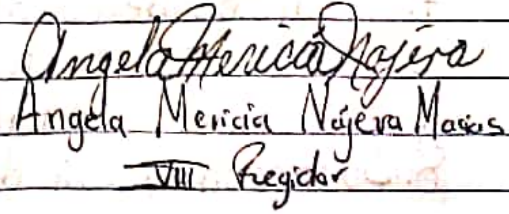 Angela Mericia Najera
Angela Mericia Najera Macias
VIII Regidor